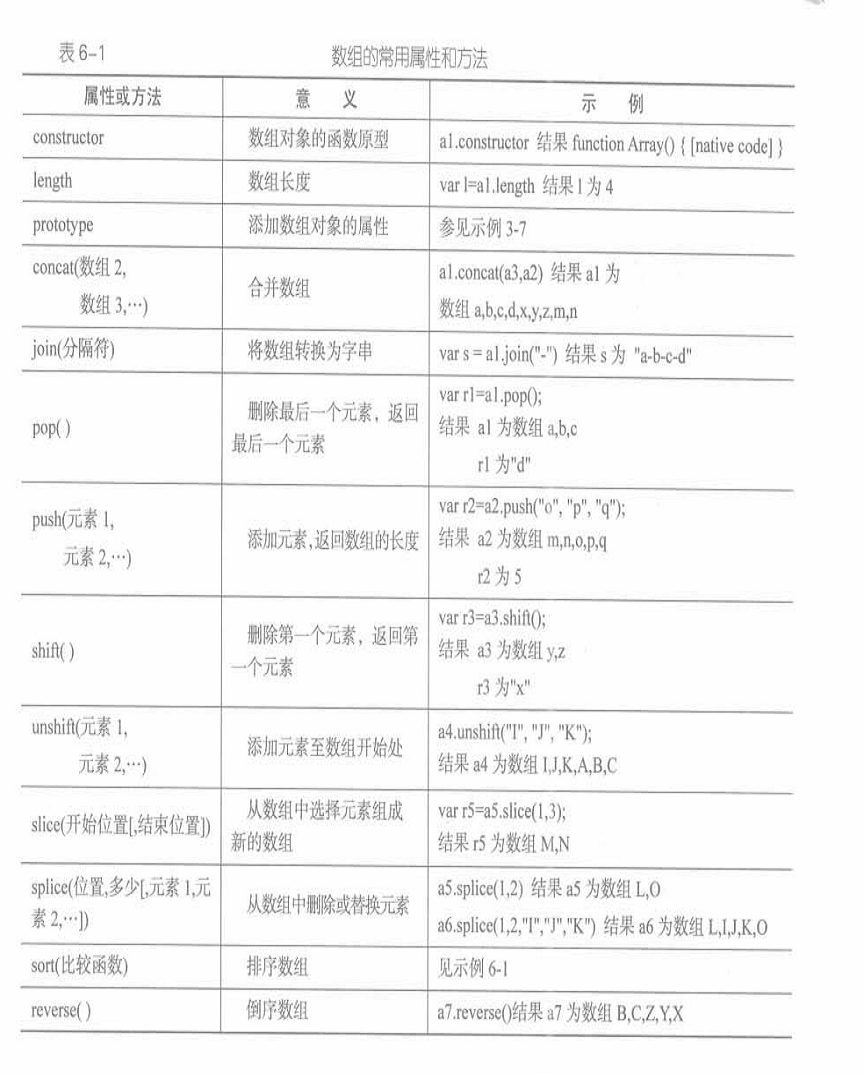 表 6–1 数组的常用属性和方法
属性或方法 意 义 示 例
constructor 数组对象的函数原型 a1.constructor 结果 function Array() { [native code] }
length 数组长度 var l=a1.length 结果 l 为 4
prototype 添加数组对象的属性 参见示例 3-7
concat(数组 2,
数组 3,…)
合并数组
a1.concat(a3,a2) 结果 a1 为
数组 a,b,c,d,x,y,z,m,n
join(分隔符) 将数组转换为字串 var s = a1.join("-") 结果 s 为 "a-b-c-d"
pop( )
删除最后一个元素，返回
最后一个元素
var r1=a1.pop();
结果 a1 为数组 a,b,c
r1 为"d"
push(元素 1,
元素 2,…)
添加元素,返回数组的长度
var r2=a2.push("o", "p", "q");
结果 a2 为数组 m,n,o,p,q
r2 为 5
shift( )
删除第一个元素，返回第
一个元素
var r3=a3.shift();
结果 a3 为数组 y,z
r3 为"x"
unshift(元素 1,
元素 2,…)
添加元素至数组开始处
a4.unshift("I", "J", "K");
结果 a4 为数组 I,J,K,A,B,C
slice(开始位置[,结束位置])
从数组中选择元素组成
新的数组
var r5=a5.slice(1,3);
结果 r5 为数组 M,N
splice(位置,多少[,元素 1,元
素 2,…])
从数组中删除或替换元素
a5.splice(1,2) 结果 a5 为数组 L,O
a6.splice(1,2,"I","J","K") 结果 a6 为数组 L,I,J,K,O
sort(比较函数) 排序数组 见示例 6-1
reverse( ) 倒序数组 a7.reverse()结果 a7 为数组 B,C,Z,Y,X